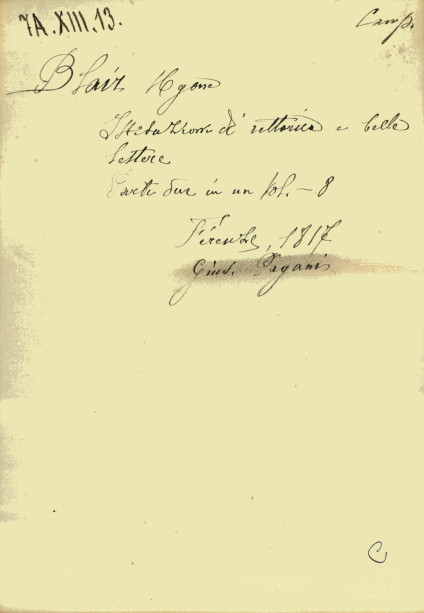 7A.XIII.13.
Camp.
Blair Ugone
Istituzioni di rettorica e belle
lettere
Parti due in un Vol. - 8
Firenze, 1817
Gius. Pagani
C